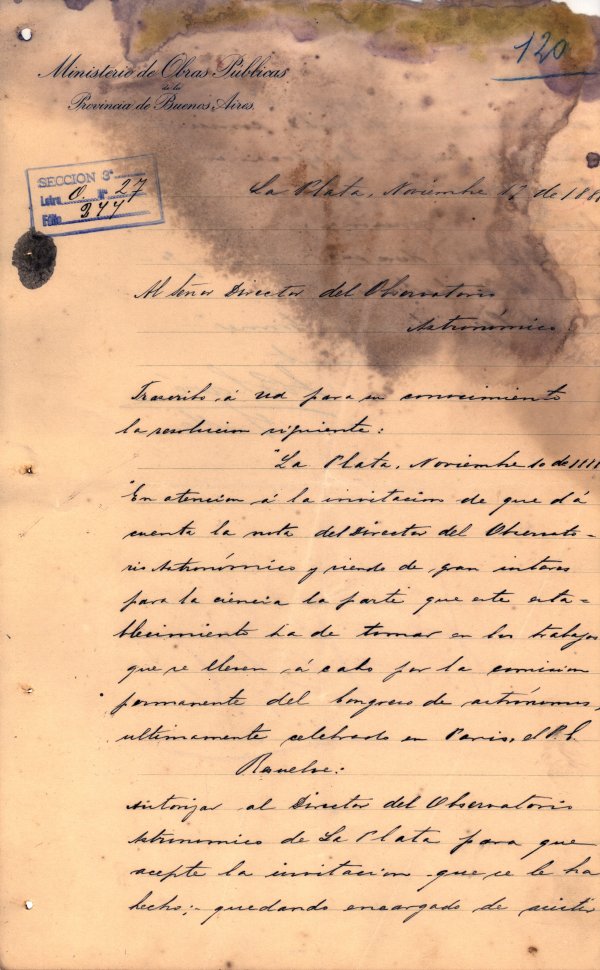 120
Ministerio de Obras Públicas
de la
Provincia de Buenos Aires.
SECCION 3ª
Letra O. Nº 27
Folio 277
La Plata, Noviembre 12 de 188
Al Señor Director del Observatorio
Astronómico.
Trascribo á ud para su conocimiento
la resolucion siguiente:
"La Plata, Noviembre 10 de
"En atencion á la invitacion de que dá
cuenta la nota del Director del Observato-
rio Astronómico y siendo de gran interes
para la ciencia la parte que este esta-
blecimiento ha de tomar en los trabajos
que se lleven á cabo por la comision
permanente del Congreso de astrónomos,
ultimamente celebrado en Paris, el P. E.
Resuelve:
Autorizar al Director del Observatorio
Astronomico de La Plata para que
acepte la invitacion que se le ha
hecho; quedando encargado de